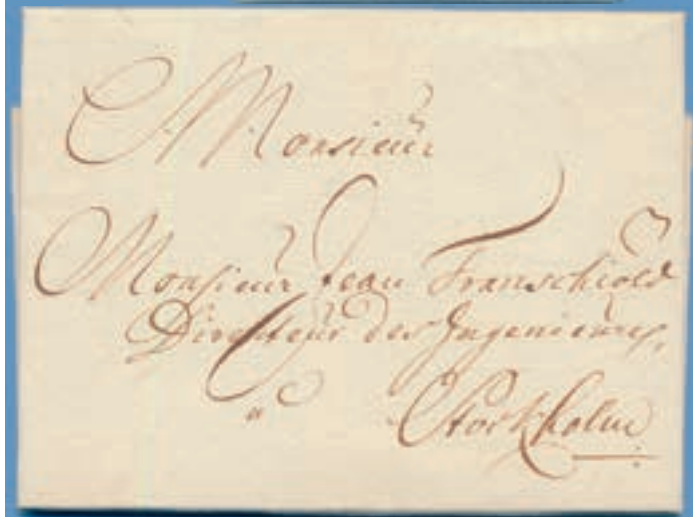 A Monsieur
Monsieur Jean Franschiöld
Directeur des Ingenieurs,
a Stockholm